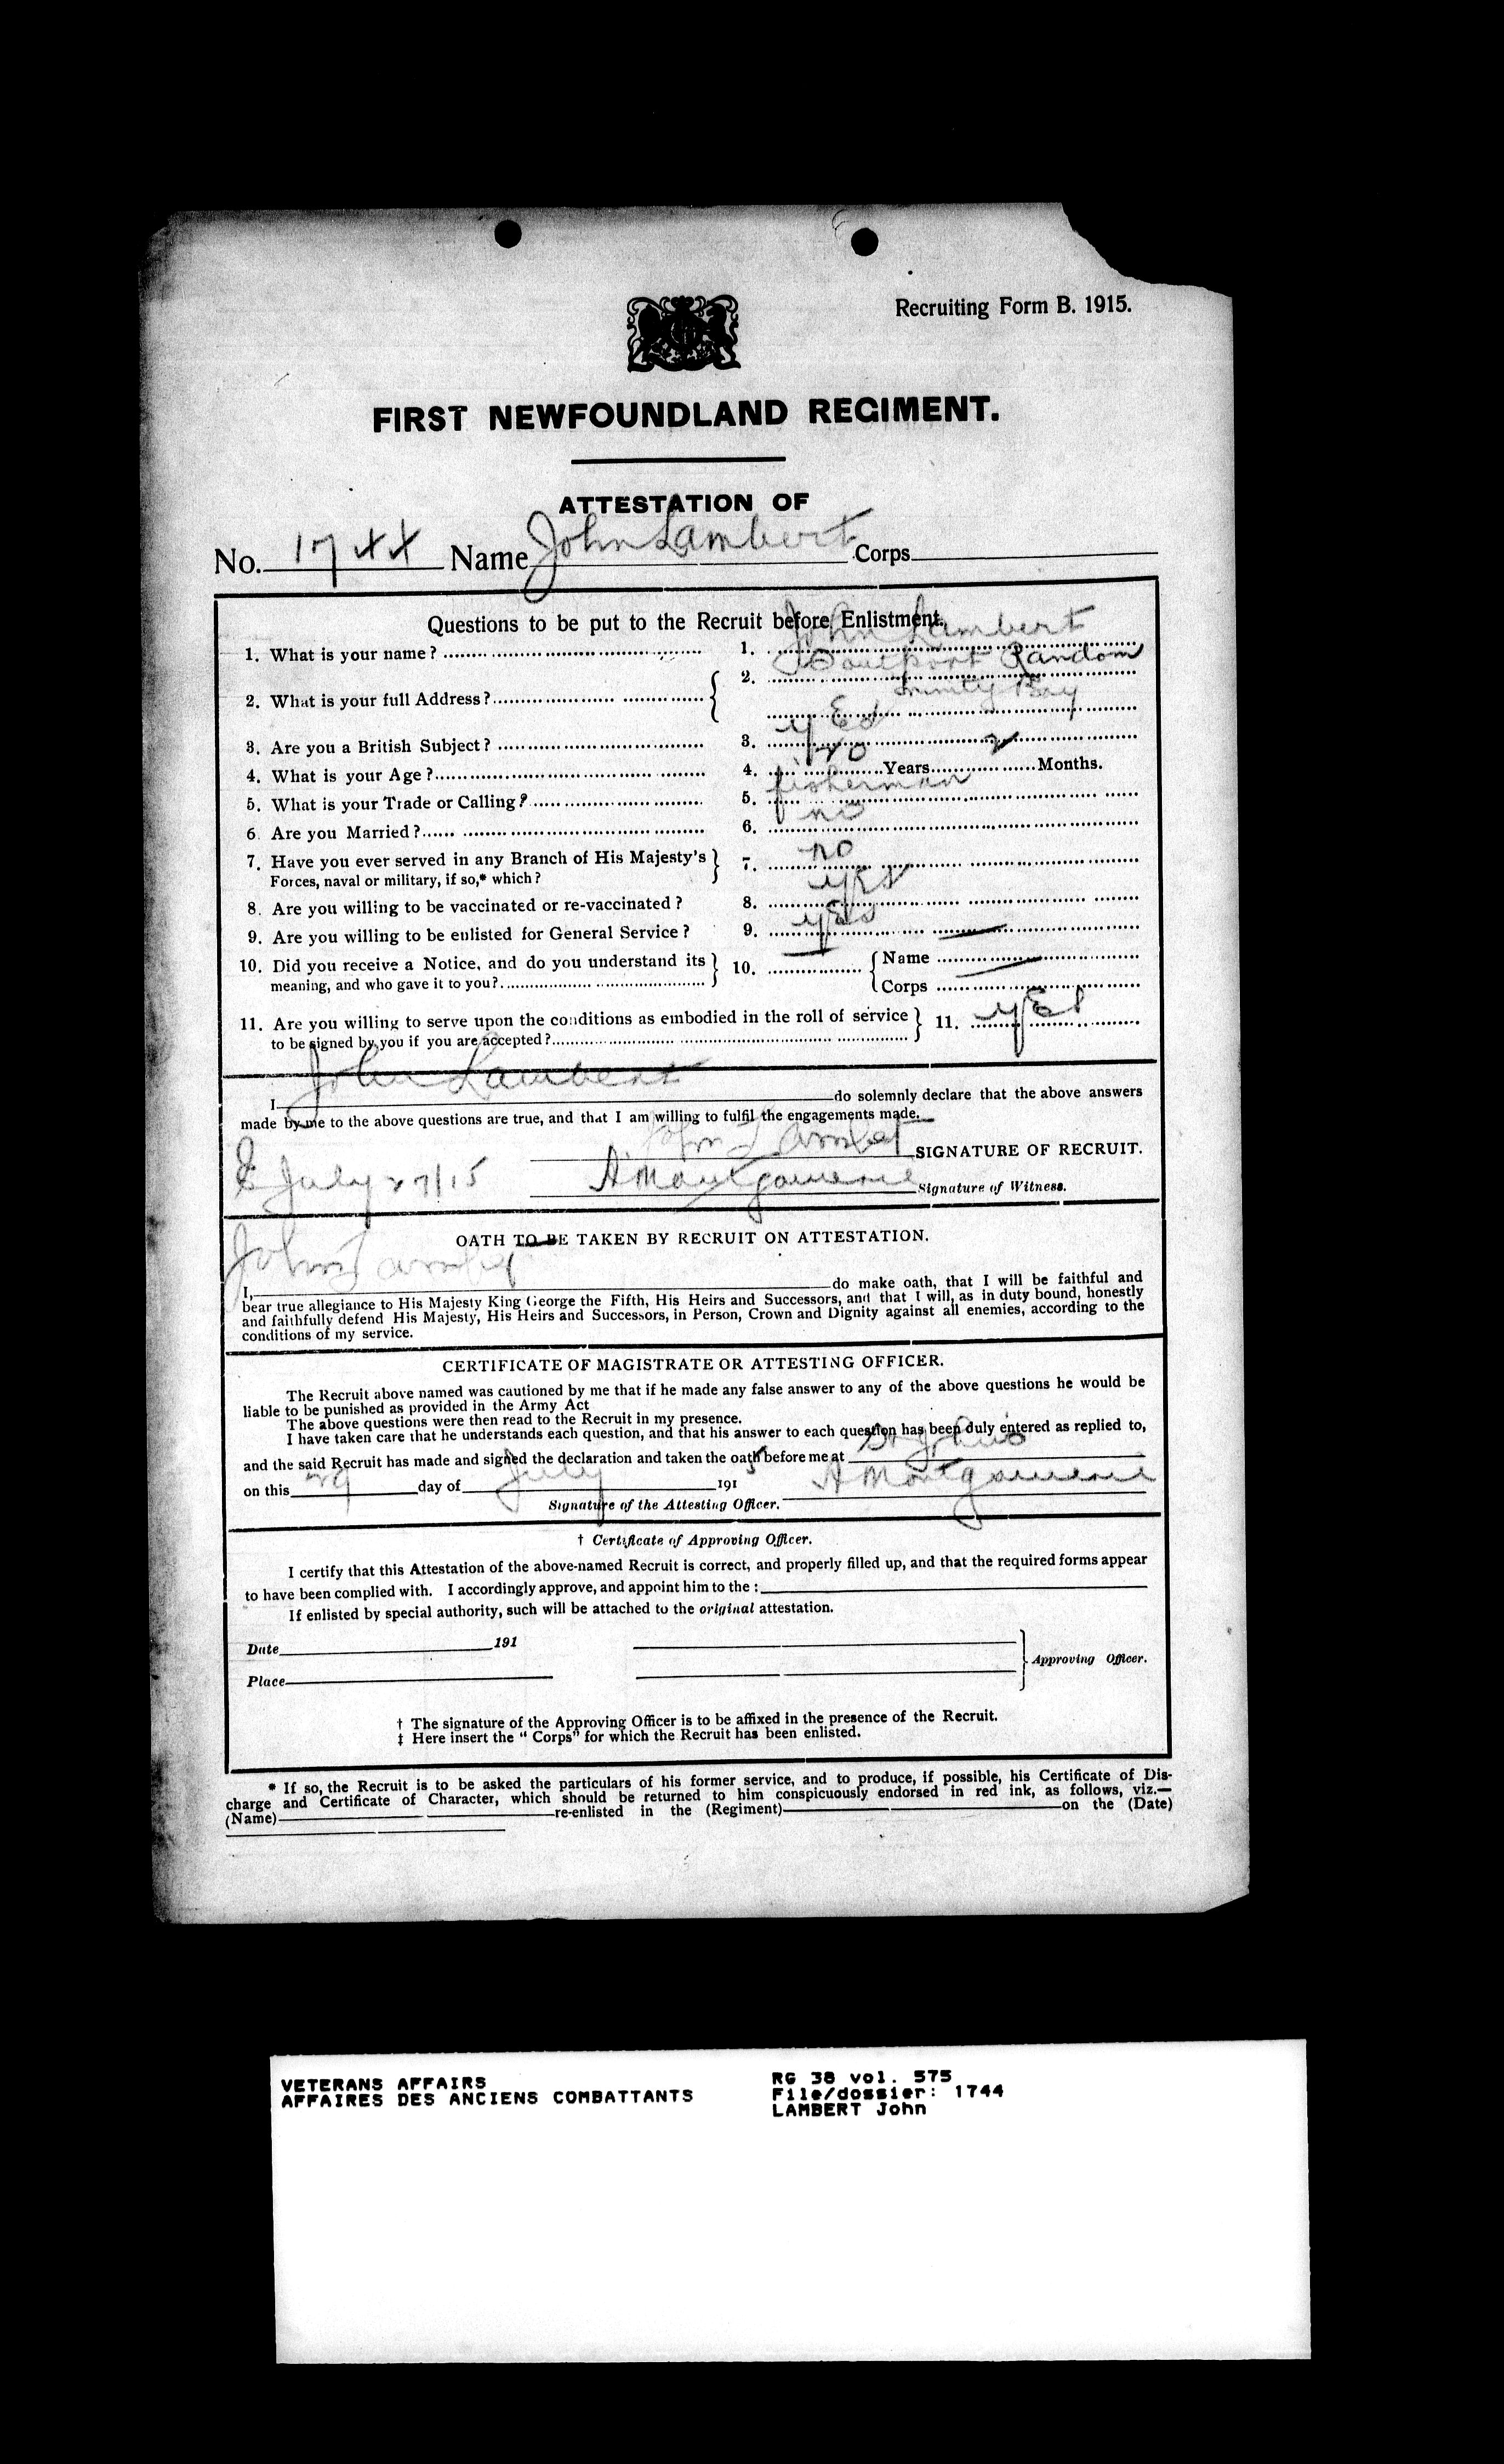 Recruiting Form B. 1915.
FIRST NEWFOUNDLAND REGIMENT.
ATTESTATION OF
No. 1744 Name John Lambert Corps
Questions to be put to the Recruit before Enlistment.
1. What is your name? 1. John Lambert
2. What is your full Address? 2. Southport Random
Trinity Bay
3. Are you a British Subject? 3. yes
4. What is your Age? 4. 20 Years 2 Months.
5. What is your Trade or Calling? 5. fisherman
6. Are you Married? 6. no
7. Have you ever served in any Branch of His Majesty's 7. no
Forces, naval or military, if so,* which?
8. Are you willing to be vaccinated or re-vaccinated? 8. yes
9. Are you willing to be enlisted for General Service? 9. yes
10. Did you receive a Notice, and do you understand its 10. Name
meaning, and who gave it to you? Corps
11. Are you willing to serve upon the conditions as embodied in the roll of service 11. yes
to be signed by you if you are accepted?
I John Lambert do solemnly declare that the above answers
made by me to the above questions are true, and that I am willing to fulfil the engagements made.
John Lambet SIGNATURE OF RECRUIT.
July 27/15 A Montgomerie Signature of Witness.
OATH TO BE TAKEN BY RECRUIT ON ATTESTATION.
I, John Lambet do make oath, that I will be faithful and
bear true allegiance to His Majesty King George the Fifth, His Heirs and Successors, and that I will, as in duty bound, honestly
and faithfully defend His Majesty, His Heirs and Successors, in Person, Crown and Dignity against all enemies, according to the
conditions of my service.
CERTIFICATE OF MAGISTRATE OR ATTESTING OFFICER.
The Recruit above named was cautioned by me that if he made any false answer to any of the above questions he would be
liable to be punished as provided in the Army Act
The above questions were then read to the Recruit in my presence.
I have taken care that he understands each question, and that his answer to each question has been duly entered as replied to,
and the said Recruit has made and signed the declaration and taken the oath before me at St John's
on this 29 day of July 1915 A Montgomerie
Signature of the Attesting Officer.
† Certificate of Approving Officer.
I certify that this Attestation of the above-named Recruit is correct, and properly filled up, and that the required forms appear
to have been complied with. I accordingly approve, and appoint him to the :
If enlisted by special authority, such will be attached to the original attestation.
Date 191
Place
Approving Officer.
† The signature of the Approving Officer is to be affixed in the presence of the Recruit.
‡ Here insert the "Corps" for which the Recruit has been enlisted.
* If so, the Recruit is to be asked the particulars of his former service, and to produce, if possible, his Certificate of Dis-
charge and Certificate of Character, which should be returned to him conspicuously endorsed in red ink, as follows, viz.—
(Name) re-enlisted in the (Regiment) on the (Date)
VETERANS AFFAIRS RG 38 vol. 575
AFFAIRES DES ANCIENS COMBATTANTS File/dossier: 1744
LAMBERT John